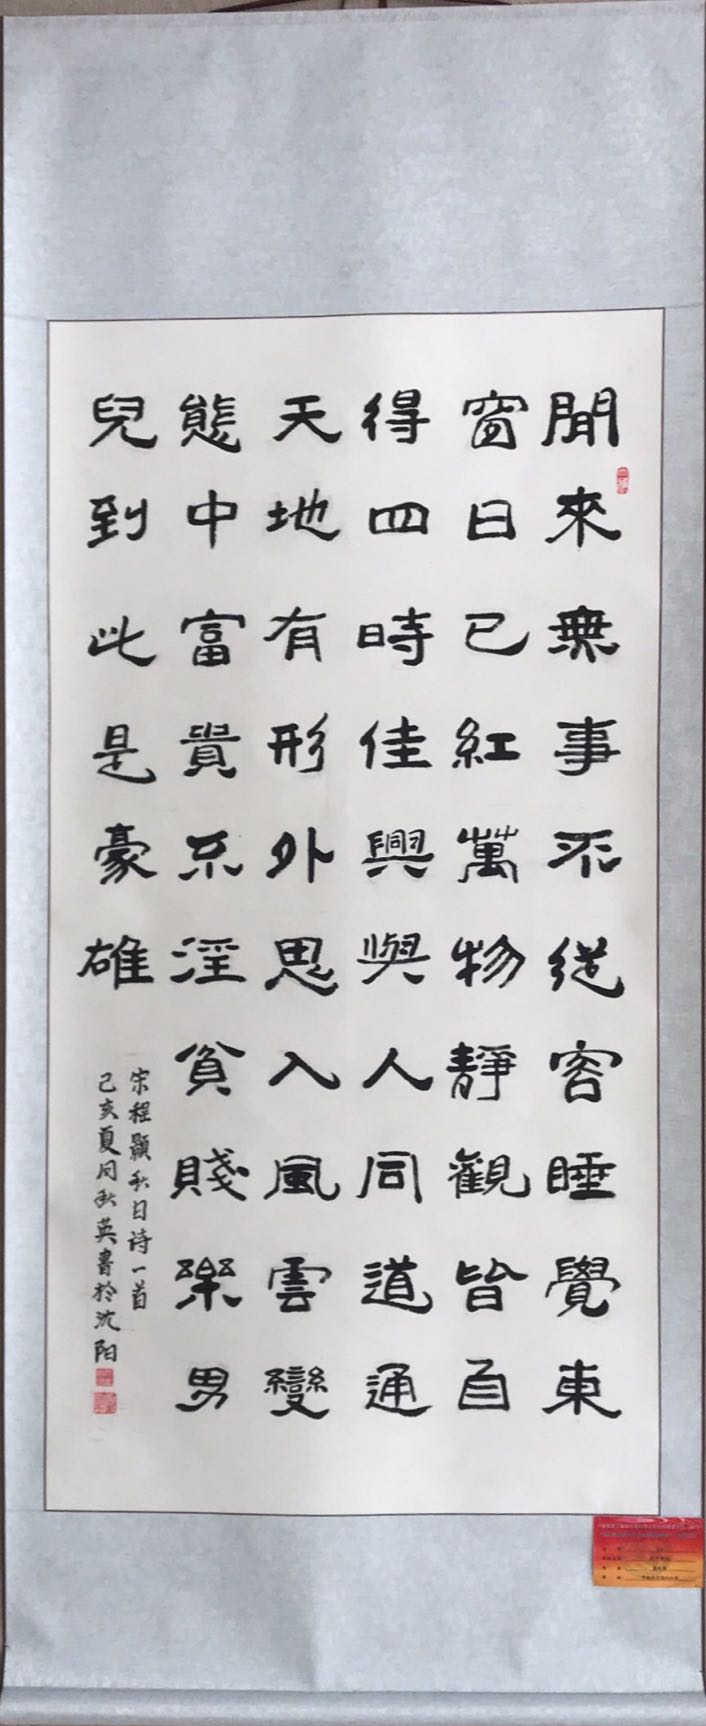 閒来無事不從容睡覺東
窗日已紅萬物靜觀皆自
得四時佳興與人同道通
天地有形外思入風雲變
態中富貴不淫貧賤樂男
兒到此是豪雄
宋程顥秋日诗一首
己亥夏月秋英書於沈阳